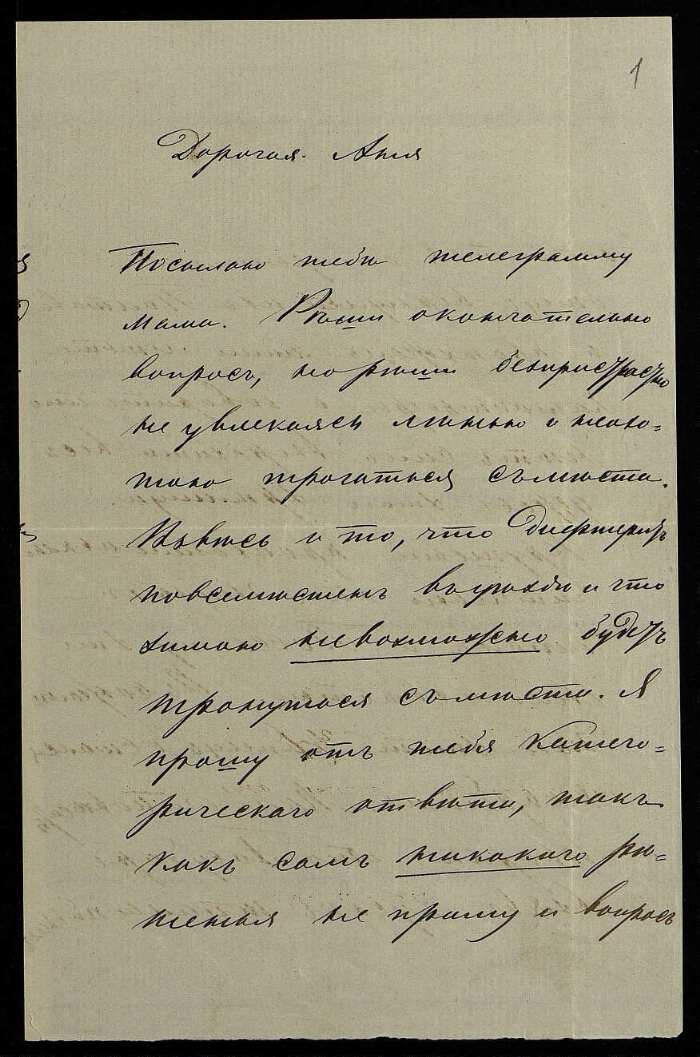 1
Дорогая Аня
Посылаю тебѣ телеграмму
мама. Рѣши окончательно
вопросъ, но рѣши безпристрастно
не увлекаясь ленью и неохо-
тою трогаться съ мѣста.
Взвѣсь и то, что дифтеритъ
повсемѣстенъ въ уѣздѣ и что
зимою невозможно будетъ
тронуться съ мѣста. Я
прошу отъ тебя катего-
рическаго отвѣта, такъ
какъ самъ никакого рѣ-
шенья не приму и вопросъ